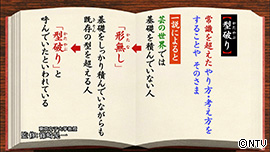 【型破り】
かたやぶ
常識を超えたやり方・考え方を
することや、そのさま
一説によると
芸の世界では
基礎を積んでいない人
「形無し」
かたな
基礎をしっかり積んでいながらも
既存の型を超える人
「型破り」と
かたやぶ
呼んでいたといわれている
©NTV